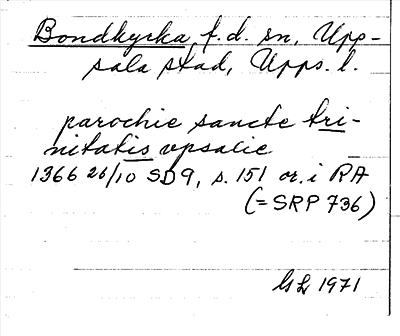 Bondkyrka, f.d. sn, Upp-
sala stad, Upps. l.
parochie sancte tri-
nitatis vpsalie
1366 26/10 SD 9, s. 151 or. i RA
(= SRP 736)
GL 1971